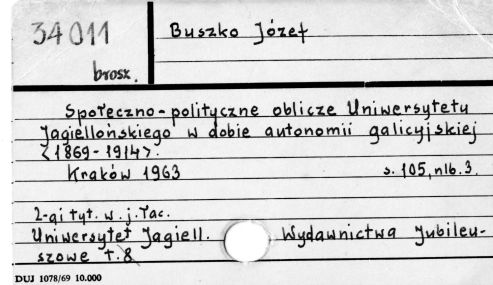 34011
brosz.
Buszko Józef
Społeczno-polityczne oblicze Uniwersytetu
Jagiellońskiego w dobie autonomii galicyjskiej
<1869-1914>.
Kraków 1963 s. 105, nlb. 3.
2-gi tyt. w j. łac.
Uniwersytet Jagiell. Wydawnictwa Jubileu-
szowe t. 8
DUJ 1078/69 10.000